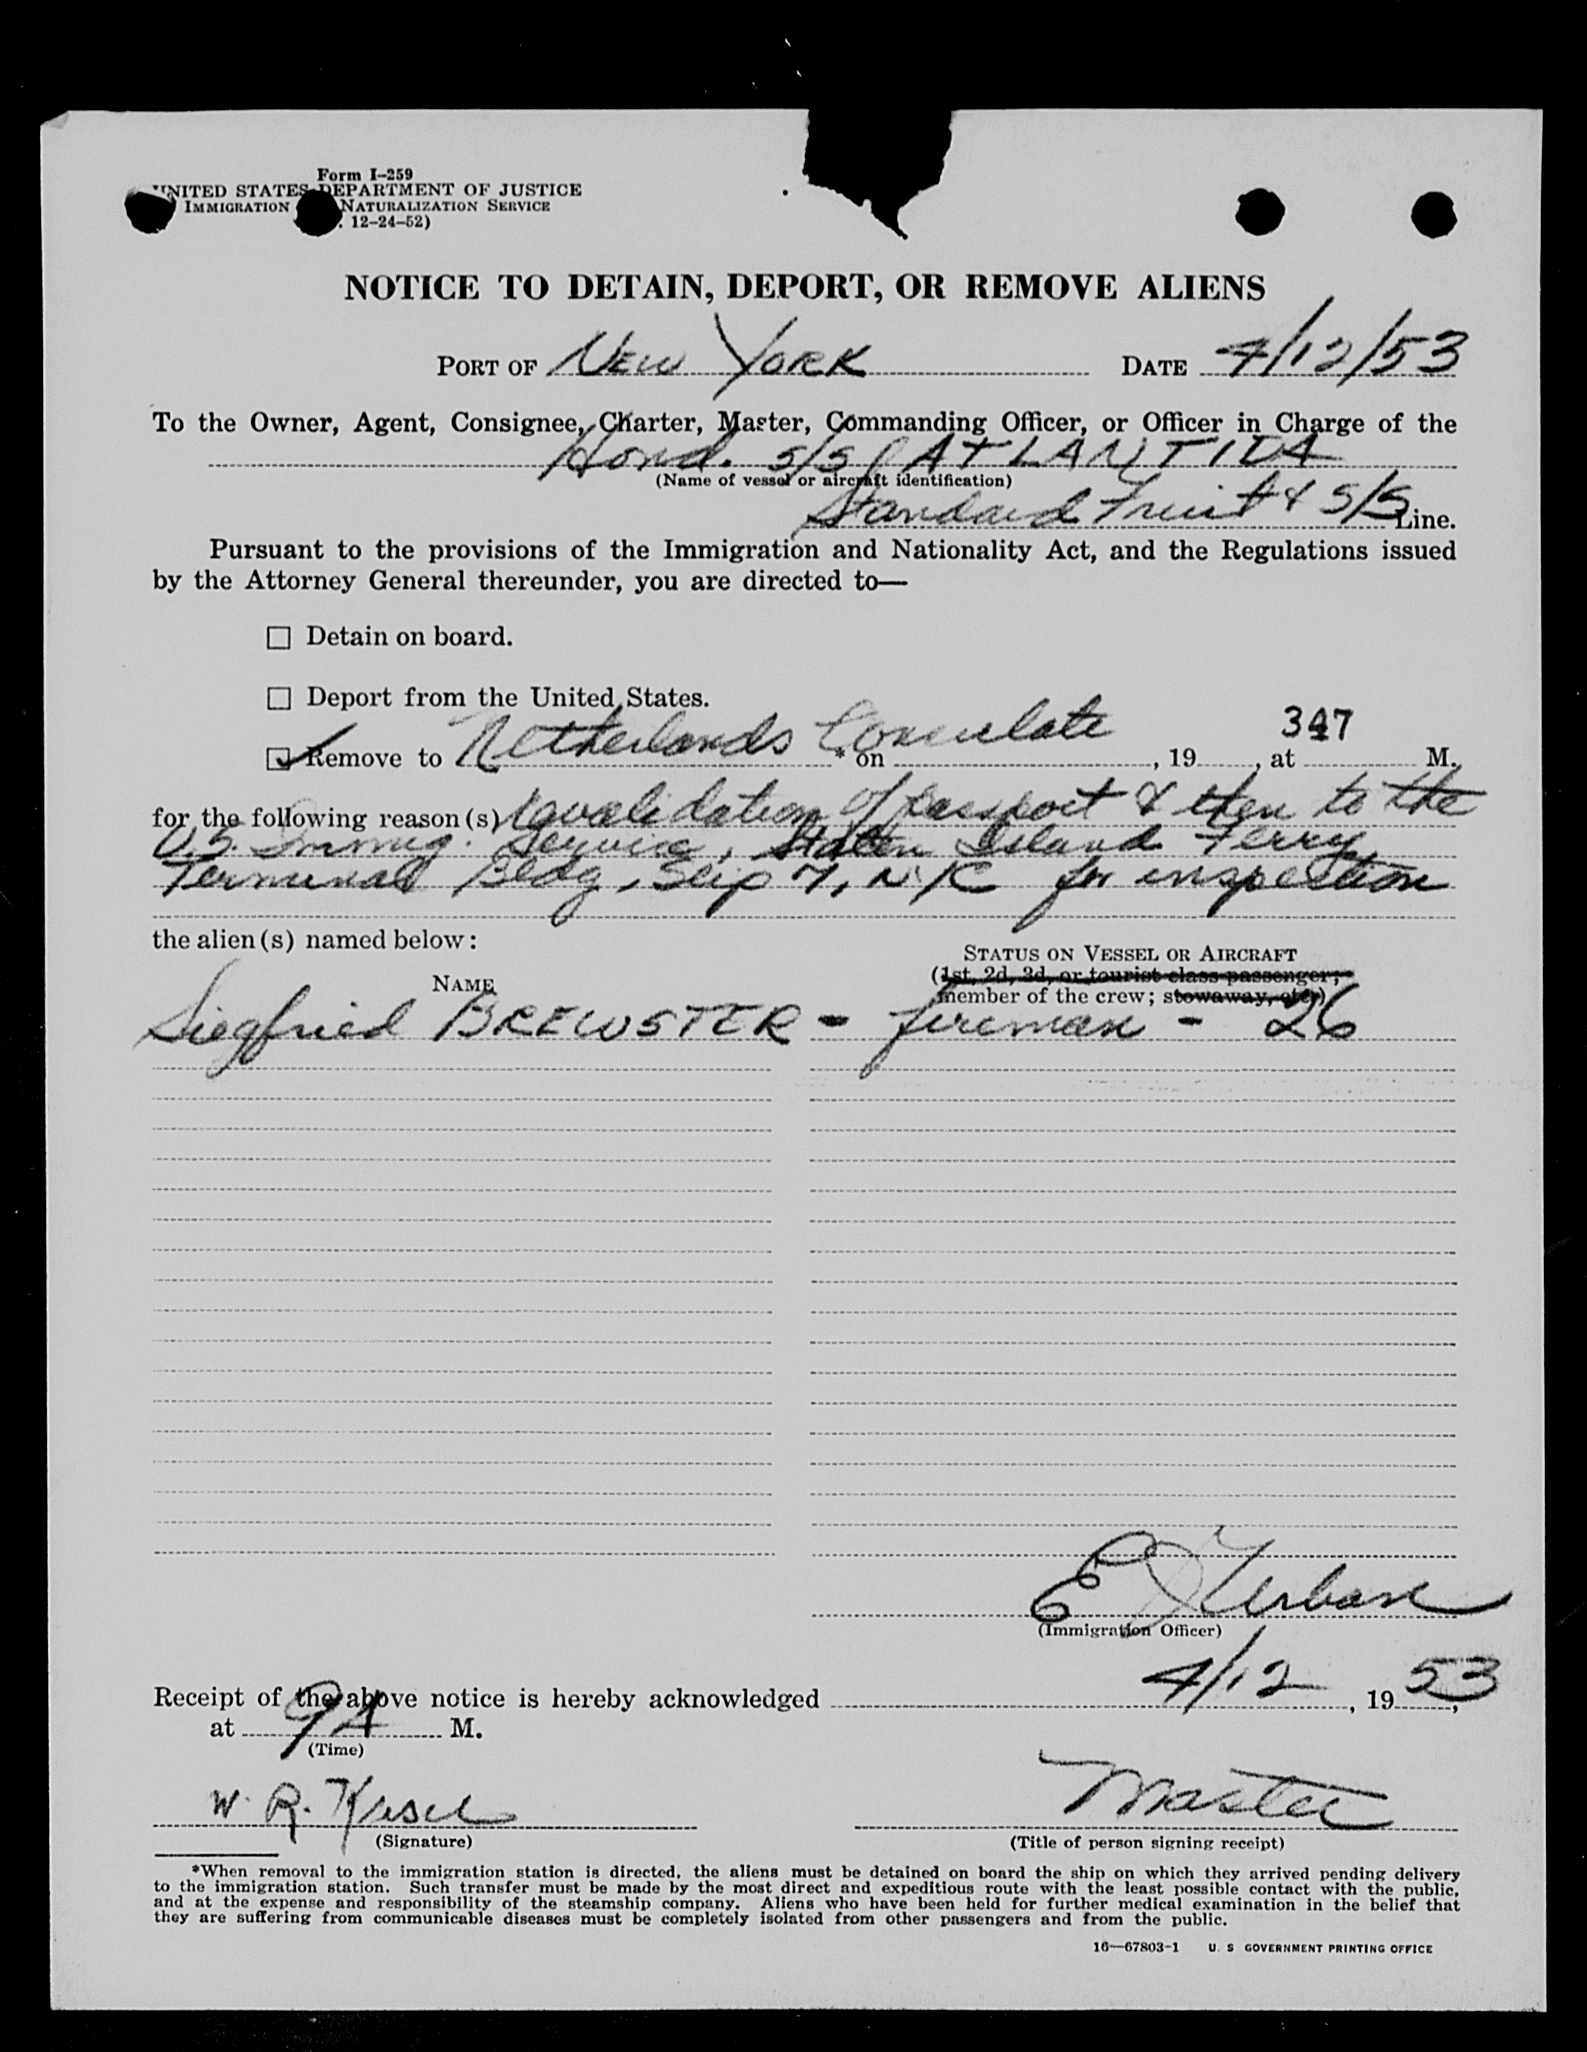 Form I-259
UNITED STATES DEPARTMENT OF JUSTICE
IMMIGRATION NATURALIZATION SERVICE
12-24-52)
NOTICE TO DETAIN, DEPORT, OR REMOVE ALIENS
PORT OF New York DATE 4/12/53
To the Owner, Agent, Consignee, Charter, Master, Commanding Officer, or Officer in Charge of the
Hond. S/S ATLANTIDA
(Name of vessel or aircraft identification)
Standard Fruit & S/S Line.
Pursuant to the provisions of the Immigration and Nationality Act, and the Regulations issued
by the Attorney General thereunder, you are directed to—
☐ Detain on board.
☐ Deport from the United States.
347
☑ Remove to Netherlands Consulate * on , 19 , at M.
for the following reason(s) of passport & then to the
U.S. Immig. Service, Staten Island Ferry
Terminal Bldg, Slip 7, NYC for inspection
the alien(s) named below:
STATUS ON VESSEL OR AIRCRAFT
NAME (1st, 2d, 3d, or tourist class passenger;
member of the crew; stowaway, etc.)
Siegfried BREWSTER - fireman - 26
E J Urban
(Immigration Officer)
Receipt of the above notice is hereby acknowledged 4/12, 1953,
at 9A M.
(Time)
W. R. Master
(Signature) (Title of person signing receipt)
*When removal to the immigration station is directed, the aliens must be detained on board the ship on which they arrived pending delivery
to the immigration station. Such transfer must be made by the most direct and expeditious route with the least possible contact with the public,
and at the expense and responsibility of the steamship company. Aliens who have been held for further medical examination in the belief that
they are suffering from communicable diseases must be completely isolated from other passengers and from the public.
16—67803-1 U. S GOVERNMENT PRINTING OFFICE